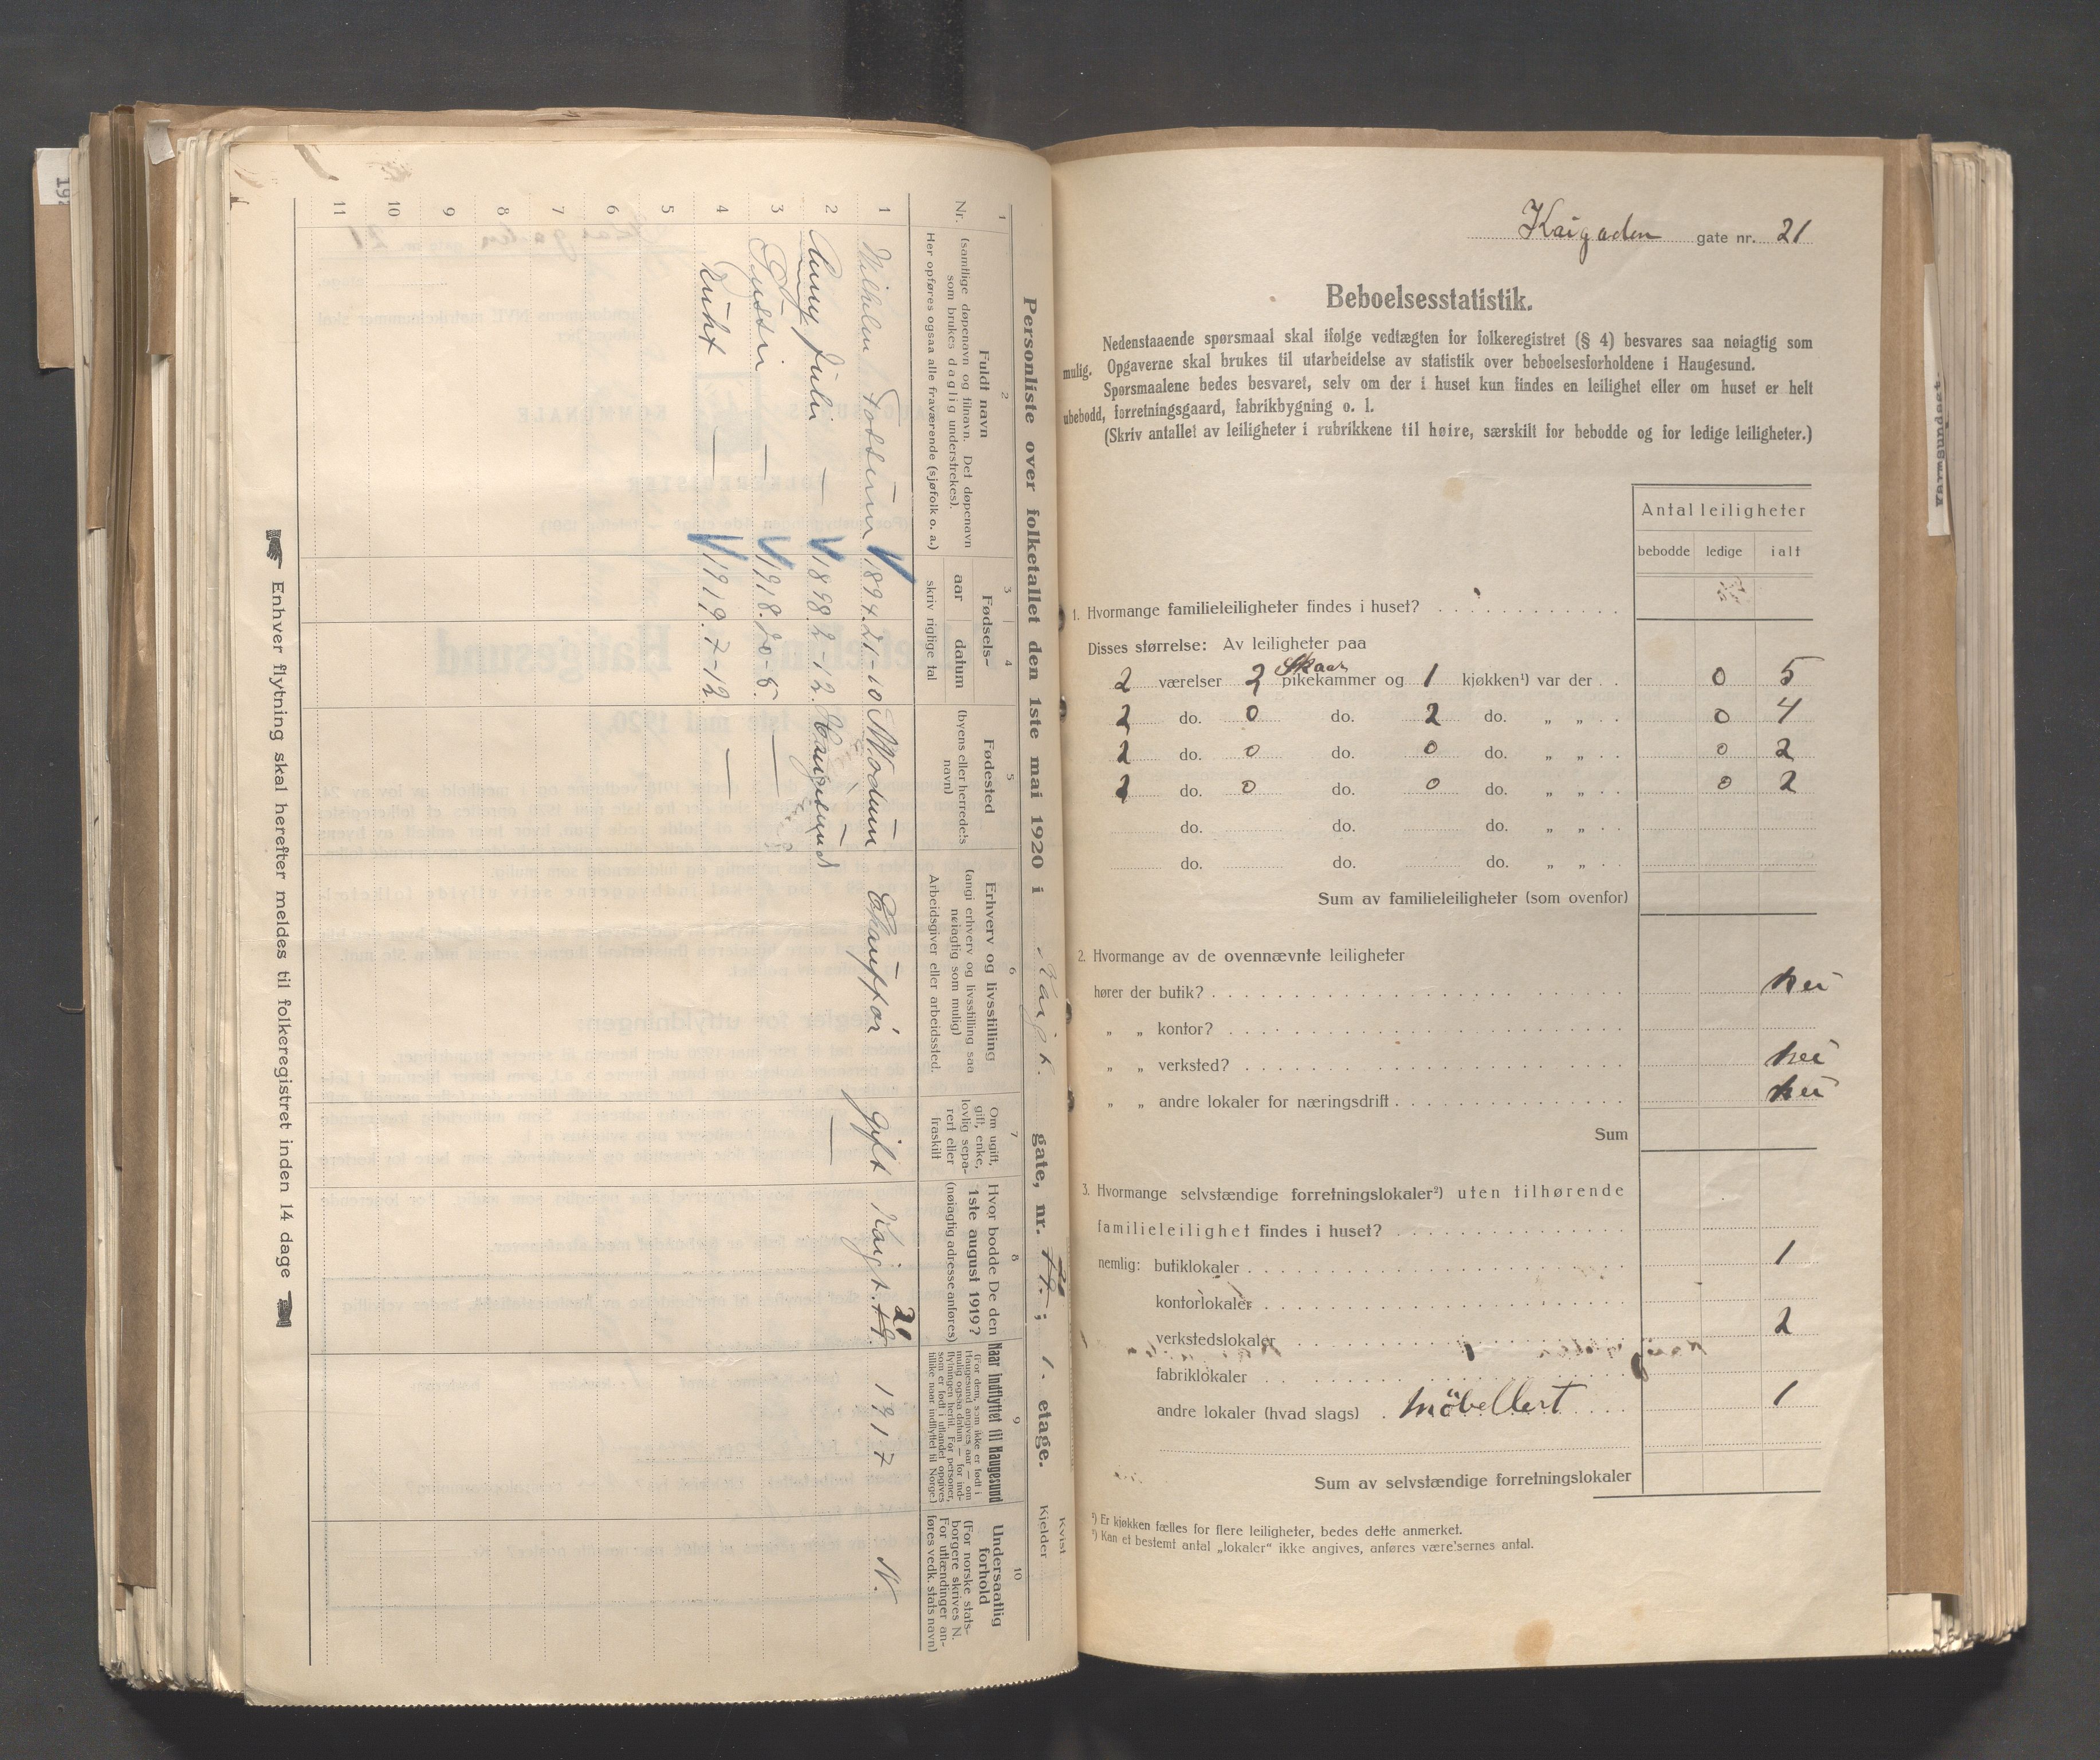 Personliste over folketallet den 1ste mai 1920 i Kaigt. gate, nr. ; 1. etage. Kvist Kjelder
1 2 3 4 5 6 7 8 9 10
Nr.
Fuldt navn
(samtlige døpenavn og tilnavn. Det døpenavn
som brukes daglig understrekes).
Her opføres ogsaa alle fraværende (sjøfolk o. a.)
Fødsels-
aar datum
skriv rigtige tal
Fødested
(byens eller herredets
navn)
Erhverv og livsstilling
(angi erhverv og livsstilling saa
nøiagtig som mulig)
Arbeidsgiver eller arbeidssted.
Om ugift,
gift, enke,
lovlig sepa-
rert eller
fraskilt
Hvor bodde De den
1ste august 1919?
(nøiagtig adresse anføres)
Naar indflyttet til Haugesund
(For dem, som ikke er født i
Haugesund angives aar — om
mulig ogsaa datum — for ind-
flytningen hertil. For personer,
som er født i utlandet opgives
tillike naar indflyttet til Norge.)
Undersaatlig
forhold
(For norske stats-
borgere skrives N.
For utlændinger an-
føres vedk. stats navn)
1 Vilhelm Fossum 1894. 21-10 Modum Chauffør gift Kaigt. 21 1917 N.
2 Anny Julie — 1898. 2-12. Haugesund —
3 — 1918. 20-5. —
4 Ruht — 1919. 7-12. —
5
6
7
8
9
10
11
Enhver flytning skal herefter meldes til folkeregistret inden 14 dage
Kaigaden gate nr. 21
Beboelsesstatistik.
Nedenstaaende spørsmaal skal ifølge vedtægten for folkeregistret (§ 4) besvares saa nøiagtig som
mulig. Opgaverne skal brukes til utarbeidelse av statistik over beboelsesforholdene i Haugesund.
Spørsmaalene bedes besvaret, selv om der i huset kun findes en leilighet eller om huset er helt
ubebodd, forretningsgaard, fabrikbygning o. l.
(Skriv antallet av leiligheter i rubrikkene til høire, særskilt for bebodde og for ledige leiligheter.)
Antal leiligheter
bebodde ledige ialt
1. Hvormange familieleiligheter findes i huset?
Disses størrelse: Av leiligheter paa
2 værelser 2 pikekammer og 1 kjøkken¹) var der . . 0 5
2 do. 0 do. 2 do. „ „ . . 0 4
2 do. 0 do. 0 do. „ „ . . 0 2
do. 0 do. 0 do. „ „ . . 0 2
do. do. do. „ „ . .
do. do. do. „ „ . .
Sum av familieleiligheter (som ovenfor)
2. Hvormange av de ovennævnte leiligheter
hører der butik? nei
„ „ kontor?
„ „ verksted? nei
„ „ andre lokaler for næringsdrift nei
Sum
3. Hvormange selvstændige forretningslokaler²) uten tilhørende
familieleilighet findes i huset?
nemlig: butiklokaler 1
kontorlokaler
verkstedslokaler 2
fabriklokaler
andre lokaler (hvad slags) . 1
Sum av selvstændige forretningslokaler
¹) Er kjøkken fælles for flere leiligheter, bedes dette anmerket.
²) Kan et bestemt antal „lokaler“ ikke angives, anføres værelsernes antal.